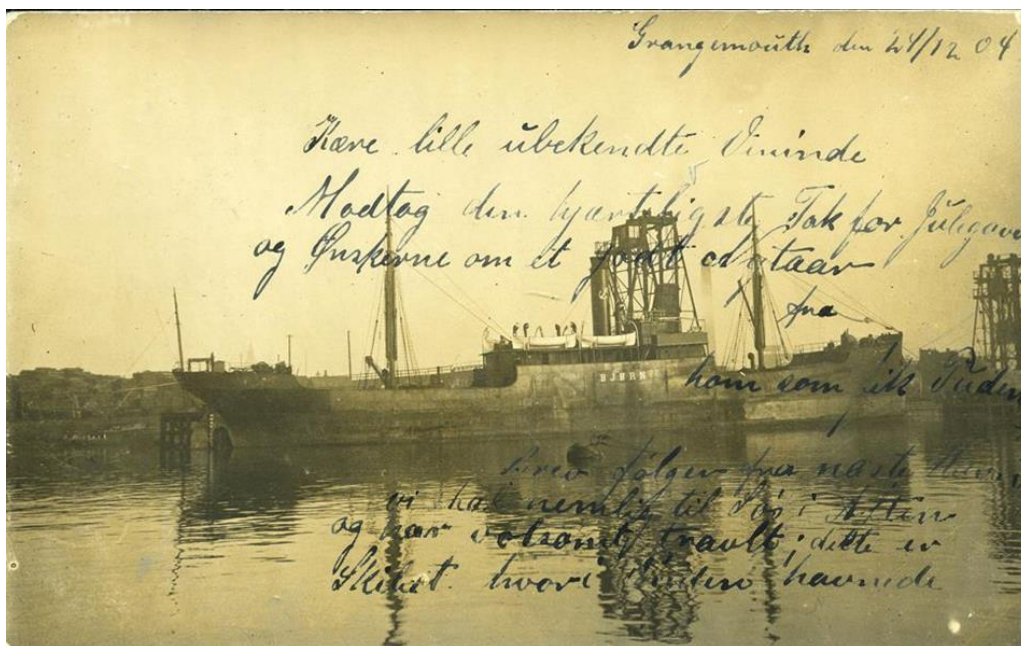 Grangemouth den 24/12 04
Kære lille ubekendte Veninde
Modtog den hjærteligste Tak for Julegaven
og Ønskerne om et godt Nytaar
fra
ham som fik Puden
BJØRN
Brev følger fra næste Havn,
vi skal nemlig til Søs i Aften
og har voldsomt travlt; dette er
Skibet hvori Puden havnede